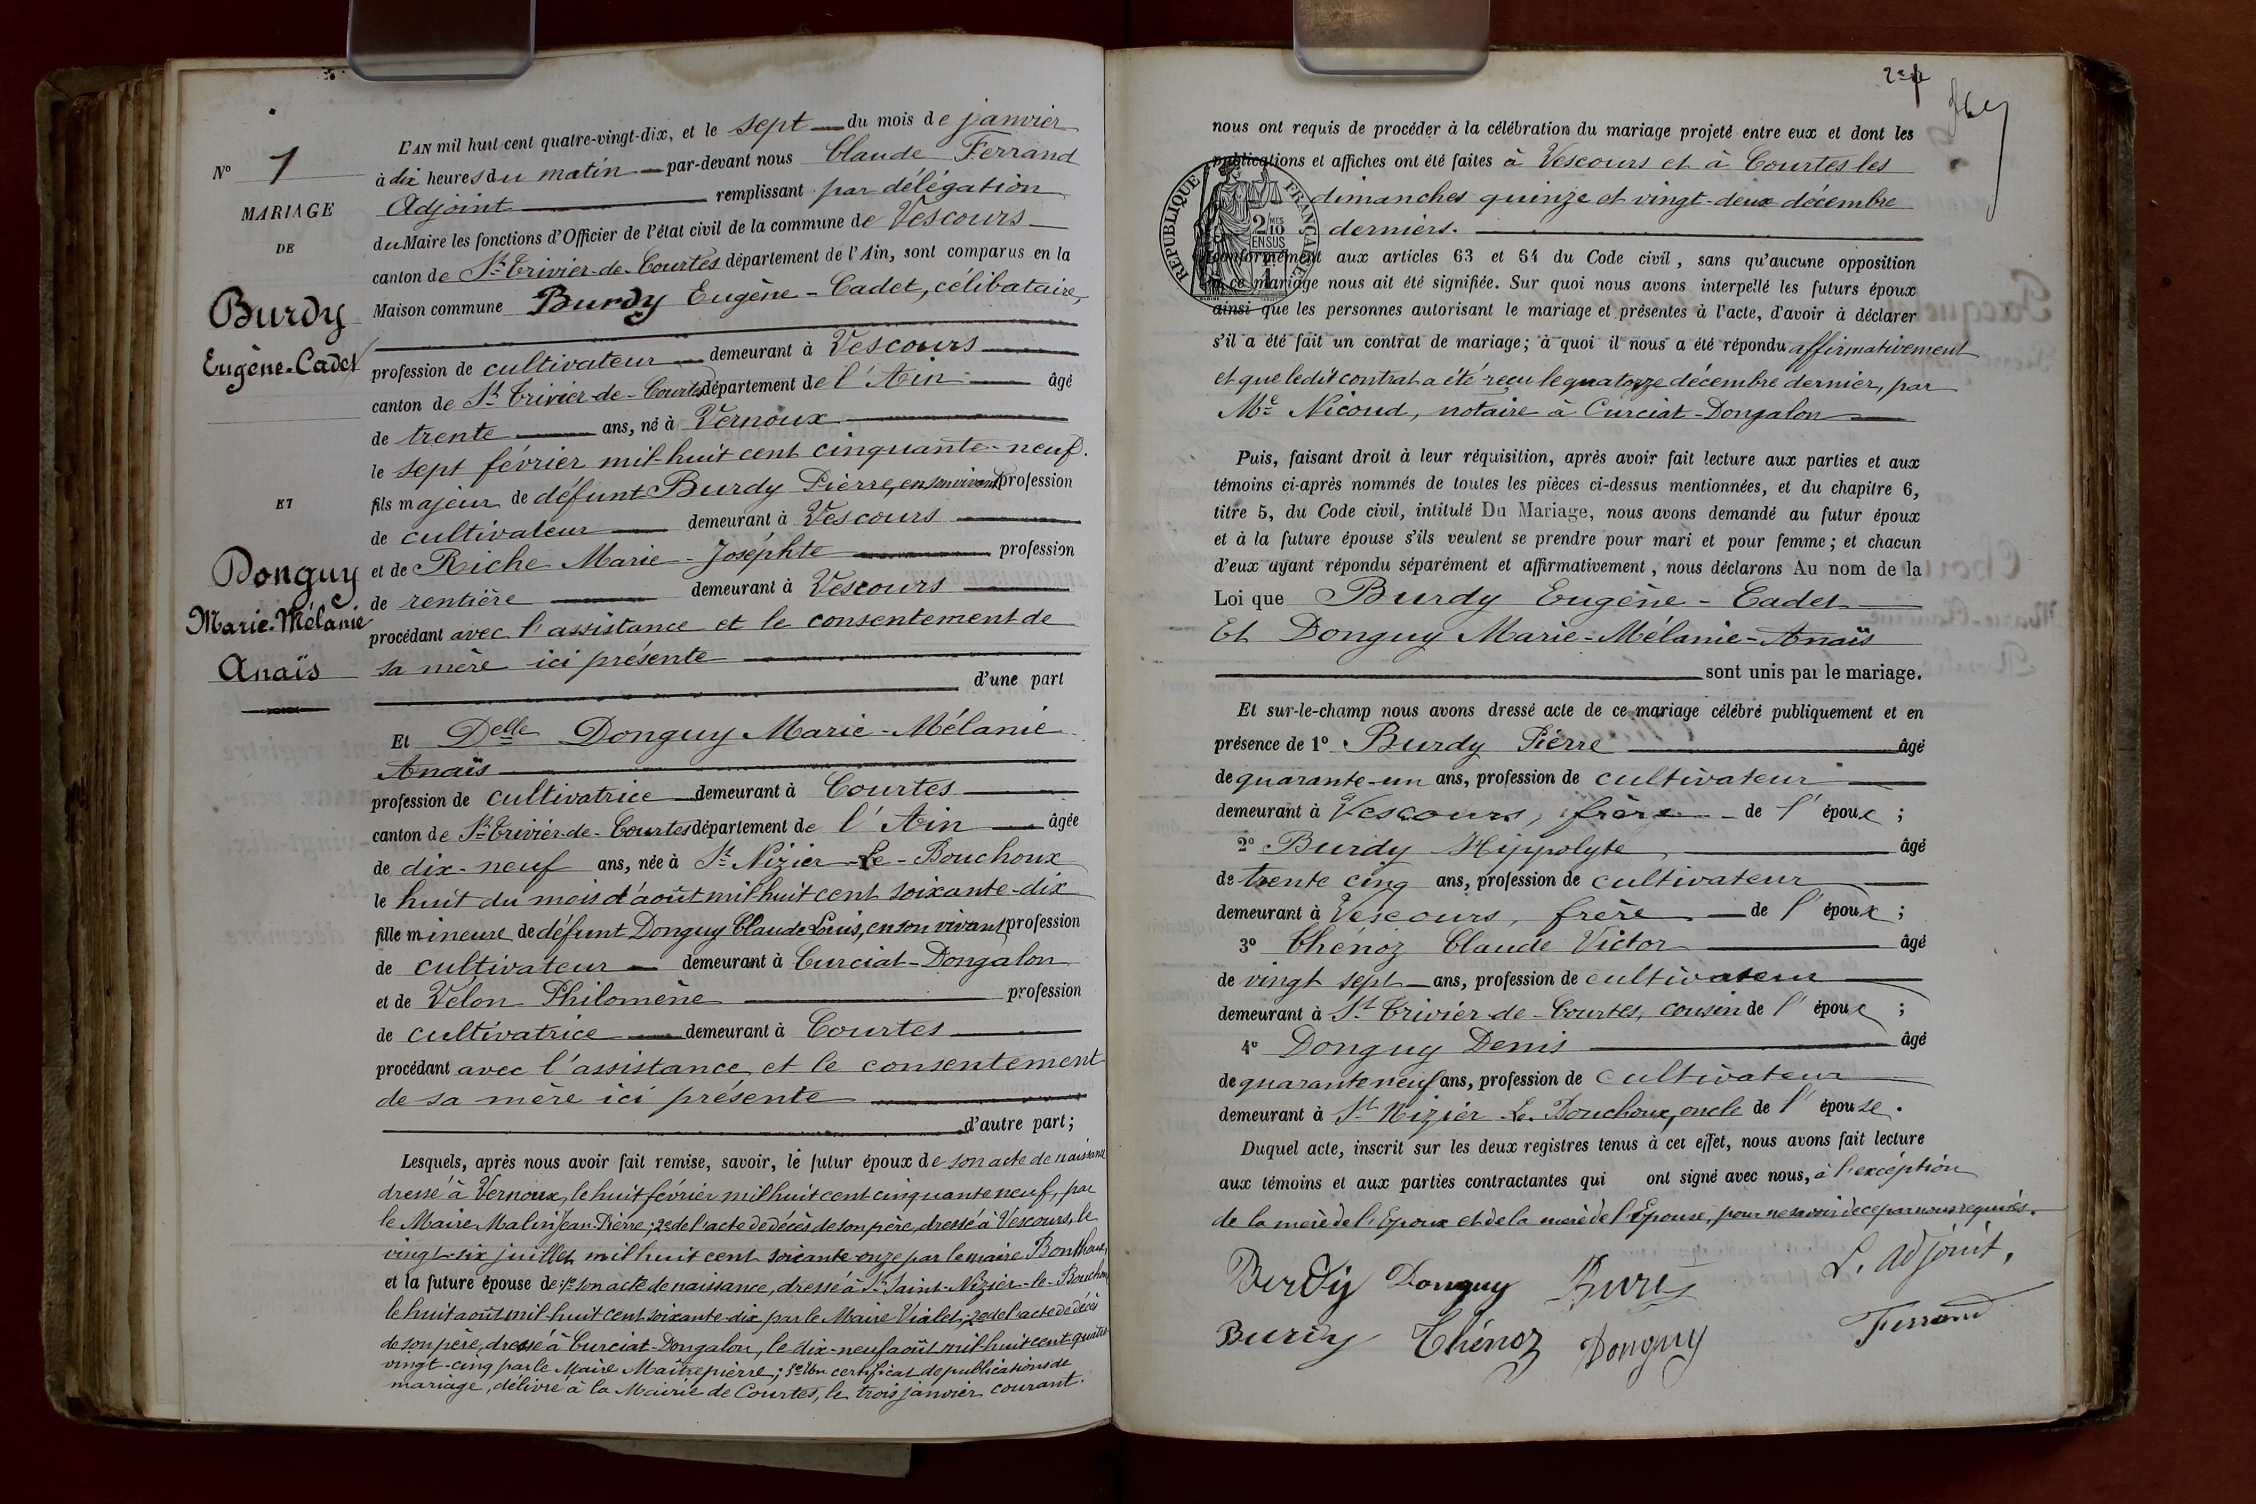 Nº 1
MARIAGE
DE
Burdy
Eugène-Cadet
ET
Donguy
Marie-Mélanie
Anaïs
L'AN mil huit cent quatre-vingt-dix, et le sept du mois de janvier
à dix heures du matin par-devant nous Claude Ferrand
Adjoint remplissant par délégation
du Maire les fonctions d'Officier de l'état civil de la commune de Vescours
canton de St Trivier-de-Courtes département de l'Ain, sont comparus en la
Maison commune Burdy Eugène-Cadet, célibataire,
profession de cultivateur demeurant à Vescours
canton de St Trivier-de-Courtes département de l'Ain âgé
de trente ans, né à Vernoux
le sept février mil-huit cent cinquante-neuf.
fils majeur de défunt Burdy Pierre, en son vivant profession
de cultivateur demeurant à Vescours
et de Riche Marie-Joséphte profession
de rentière demeurant à Vescours
procédant avec l'assistance et le consentement de
sa mère ici présente
d'une part
Et Delle Donguy Marie-Mélanie
Anaïs
profession de cultivatrice demeurant à Courtes
canton de St Trivier-de-Courtes département de l'Ain âgée
de dix-neuf ans, née à St Nizier-Le-Bouchoux
le huit du mois d'août mil huit cent soixante-dix
fille mineure de défunt Donguy Claude Louis, en son vivant profession
de cultivateur demeurant à Curciat-Dongalon
et de Vélon Philomène profession
de cultivatrice demeurant à Courtes
procédant avec l'assistance et le consentement
de sa mère ici présente
d'autre part;
Lesquels, après nous avoir fait remise, savoir, le futur époux de son acte de naissance
dressé à Vernoux, le huit février mil huit cent cinquante neuf, par
le Maire Malin Jean-Pierre; 2e de l'acte de décès de son père, dressé à Vescours, le
vingt-six juillet mil huit cent soixante-onze par le maire Bonthoux,
et la future épouse de 1º son acte de naissance, dressé à St Saint-Nizier-le-Bouchoux
le huit août mil huit cent soixante-dix par le Maire Vialet; 2e de l'acte de décès
de son père, dressé à Curciat-Dongalon, le dix-neuf août mil-huit cent-quatre-
vingt-cinq par le Maire Maîtrepierre; certificat de publications de
mariage, délivré à la Mairie de Courtes, le trois janvier courant.
nous ont requis de procéder à la célébration du mariage projeté entre eux et dont les
publications et affiches ont été faites à Vescours et à Courtes les
dimanches quinze et vingt-deux décembre
derniers.
RÉPUBLIQUE FRANÇAISE
2/10 EN SUS
conformément aux articles 63 et 64 du Code civil, sans qu'aucune opposition
à ce mariage nous ait été signifiée. Sur quoi nous avons interpellé les futurs époux
ainsi que les personnes autorisant le mariage et présentes à l'acte, d'avoir à déclarer
s'il a été fait un contrat de mariage; à quoi il nous a été répondu affirmativement
et que ledit contrat a été reçu le quatorze décembre dernier, par
Me Nicoud, notaire à Curciat-Dongalon
Puis, faisant droit à leur réquisition, après avoir fait lecture aux parties et aux
témoins ci-après nommés de toutes les pièces ci-dessus mentionnées, et du chapitre 6,
titre 5, du Code civil, intitulé Du Mariage, nous avons demandé au futur époux
et à la future épouse s'ils veulent se prendre pour mari et pour femme; et chacun
d'eux ayant répondu séparément et affirmativement, nous déclarons Au nom de la
Loi que Burdy Eugène-Cadet
Et Donguy Marie-Mélanie-Anaïs
sont unis par le mariage.
Et sur-le-champ nous avons dressé acte de ce mariage célébré publiquement et en
présence de 1º Burdy Pierre âgé
de quarante-un ans, profession de cultivateur
demeurant à Vescours, frère de l'époux;
2º Burdy Hippolyte, âgé
de trente cinq ans, profession de cultivateur
demeurant à Vescours, frère de l'époux;
3º Chénoz Claude Victor âgé
de vingt sept ans, profession de cultivateur
demeurant à St Trivier-de-Courtes, cousin de l'époux;
4º Donguy Denis âgé
de quarante neuf ans, profession de cultivateur
demeurant à St Nizier-Le-Bouchoux, oncle de l'épouse.
Duquel acte, inscrit sur les deux registres tenus à cet effet, nous avons fait lecture
aux témoins et aux parties contractantes qui ont signé avec nous, à l'excéption
de la mère de l'Epoux et de la mère de l'Epouse, pour ne savoir de ce par nous requises.
Burdy Donguy L. Adjoint,
Burdy Chénoz Donguy Ferrand